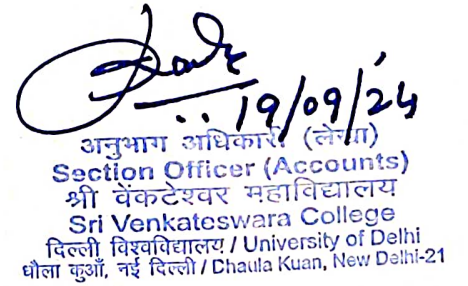 19/09/24
अनुभाग अधिकारी (लेखा)
Section Officer (Accounts)
श्री वेंकटेश्वर महाविद्यालय
Sri Venkateswara College
दिल्ली विश्वविद्यालय / University of Delhi
धौला कुआँ, नई दिल्ली / Dhaula Kuan, New Delhi-21